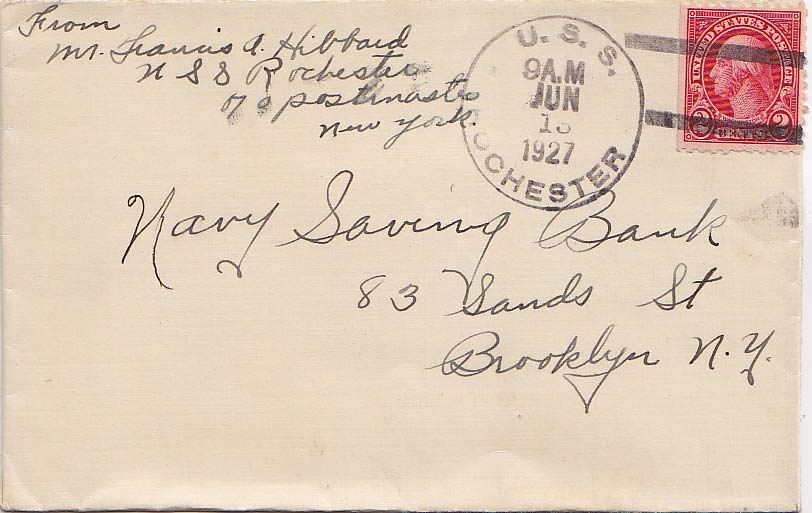 From
Mr. Francis A. Hibbard
U S S Rochester
c/o postmaster
New York.
U. S. S.
9 A.M
JUN
13
1927
ROCHESTER
UNITED STATES POSTAGE
2 CENTS 2
Navy Saving Bank
83 Sands St
Brooklyn N.Y.